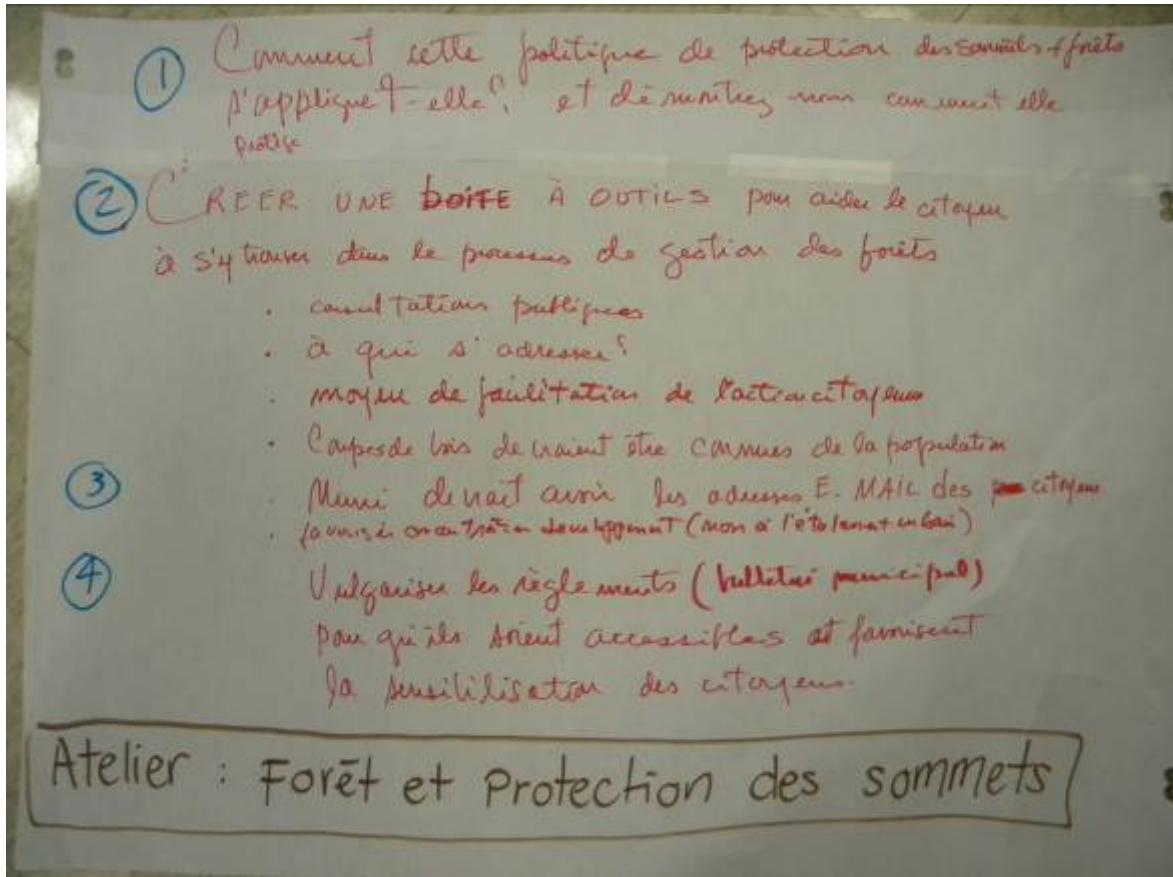 ① Comment cette politique de protection des sommets + forêts
s'applique t-elle? et démontrez nous comment elle
protège
② CRÉER UNE boiTE À OUTILS pour aider le citoyen
à s'y trouver dans le processus de gestion des forêts
. consultations publiques
. à qui s'adresser?
. moyen de facilitation de l'action citoyenne
. Coupes de bois devraient être connues de la population
③ . Muni devrait avoir les adresses E. MAIL des citoyens
. favoriser concentration développement (non à l'étalement urbain)
④ Vulgariser les règlements (bulletin municipal)
pour qu'ils soient accessibles et favorisent
la sensibilisation des citoyens.
Atelier : Forêt et Protection des sommets